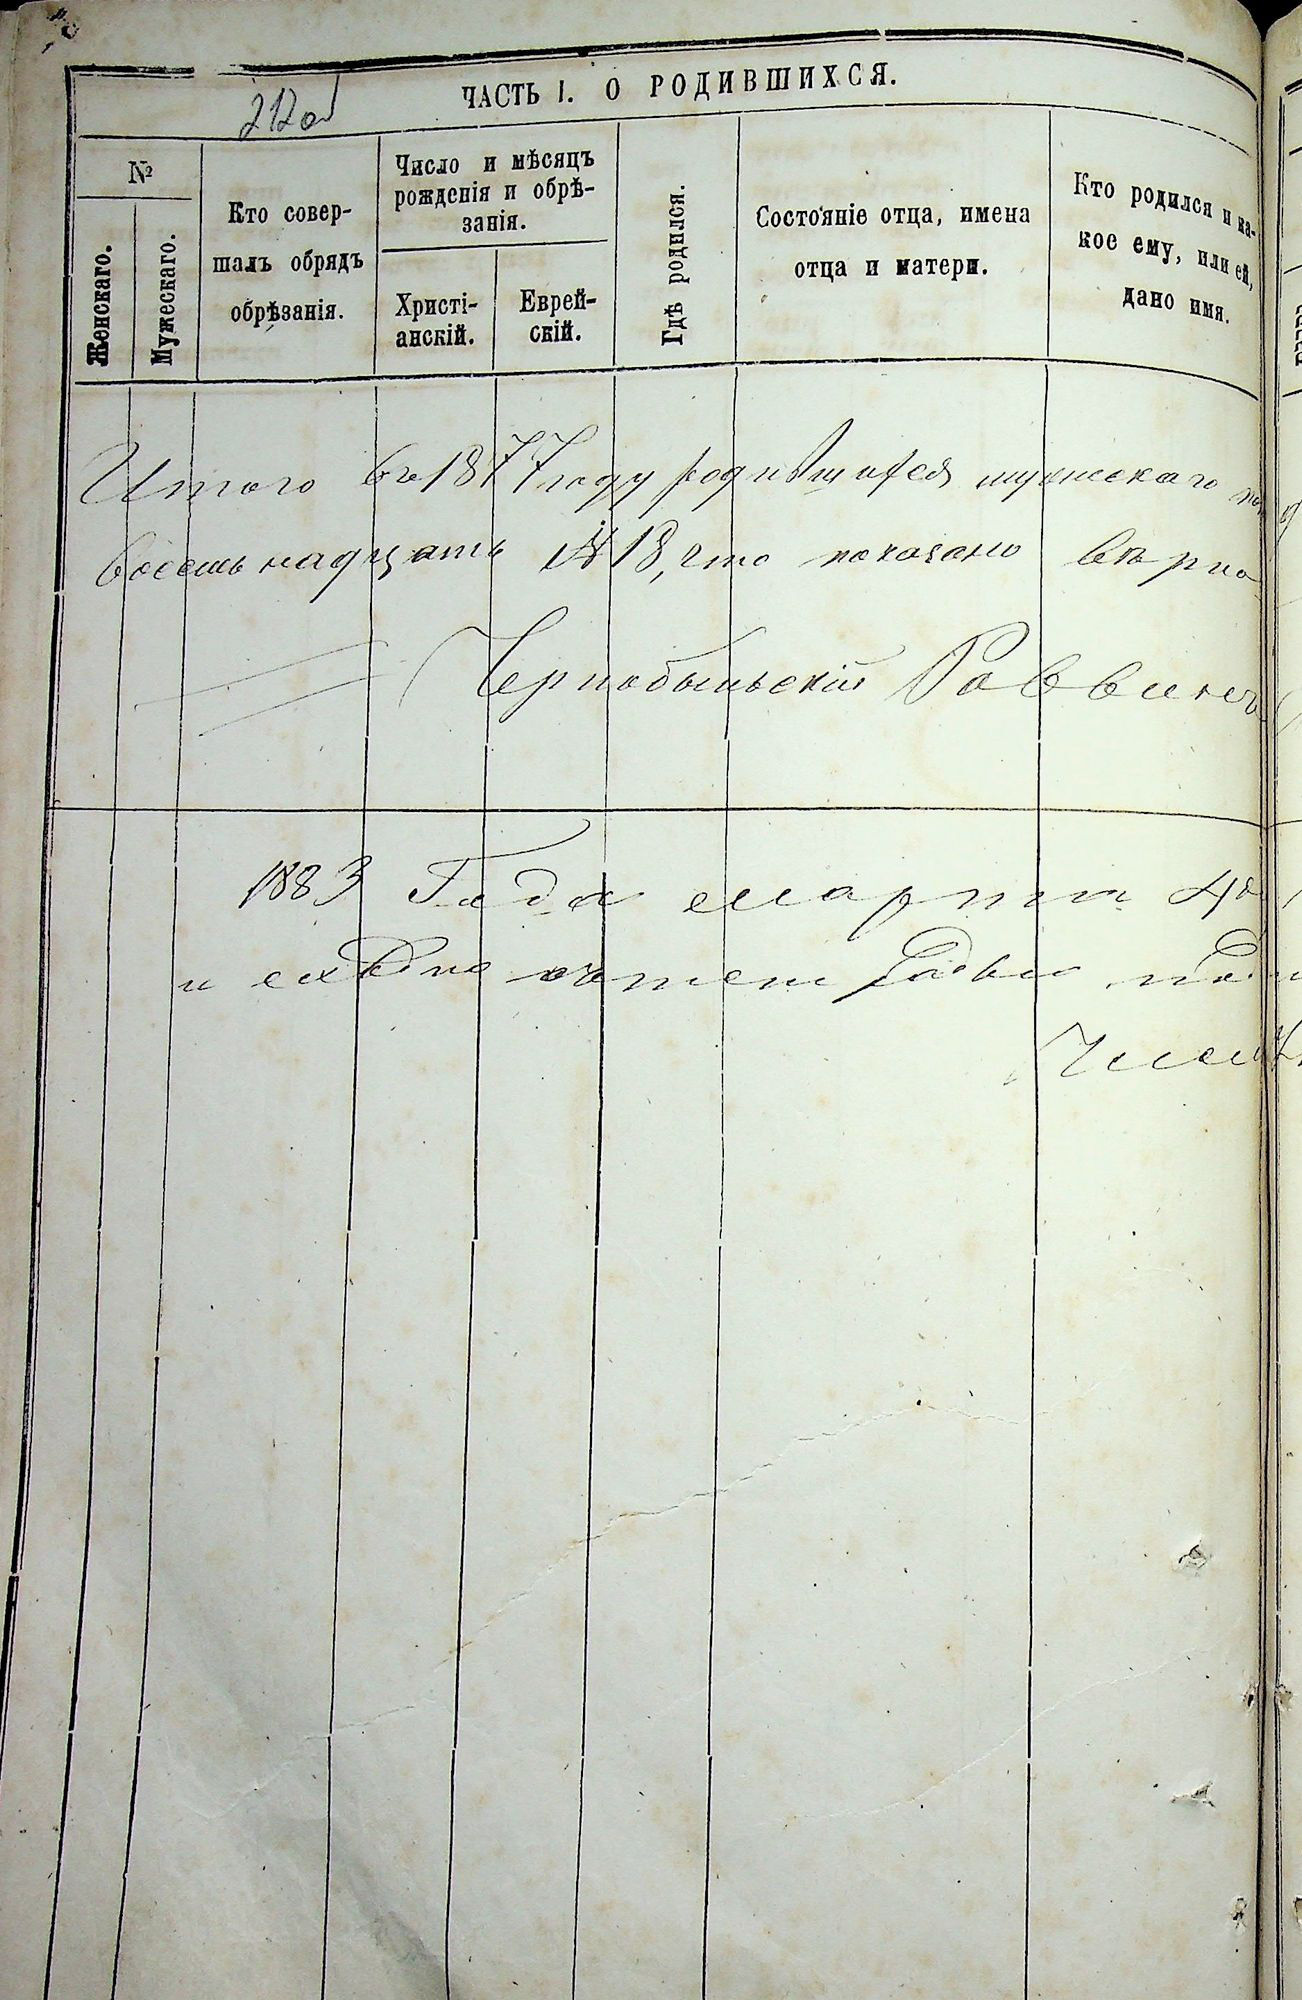 212об
ЧАСТЬ I. О РОДИВШИХСЯ.
№
Женскаго.
Мужескаго.
Кто совер-
шалъ обрядъ
обрѣзанія.
Число и мѣсяцъ
рожденія и обрѣ-
занія.
Христі-
анскій.
Еврей-
скій.
Гдѣ родился.
Состояніе отца, имена
отца и матери.
Кто родился и ка-
кое ему, или ей,
дано имя.
Итого въ 1877 году родившихся мужескаго
восемьнадцать № 18, что показано вѣрно
Чернобыльскій Раввинъ
1883 Года марта
и